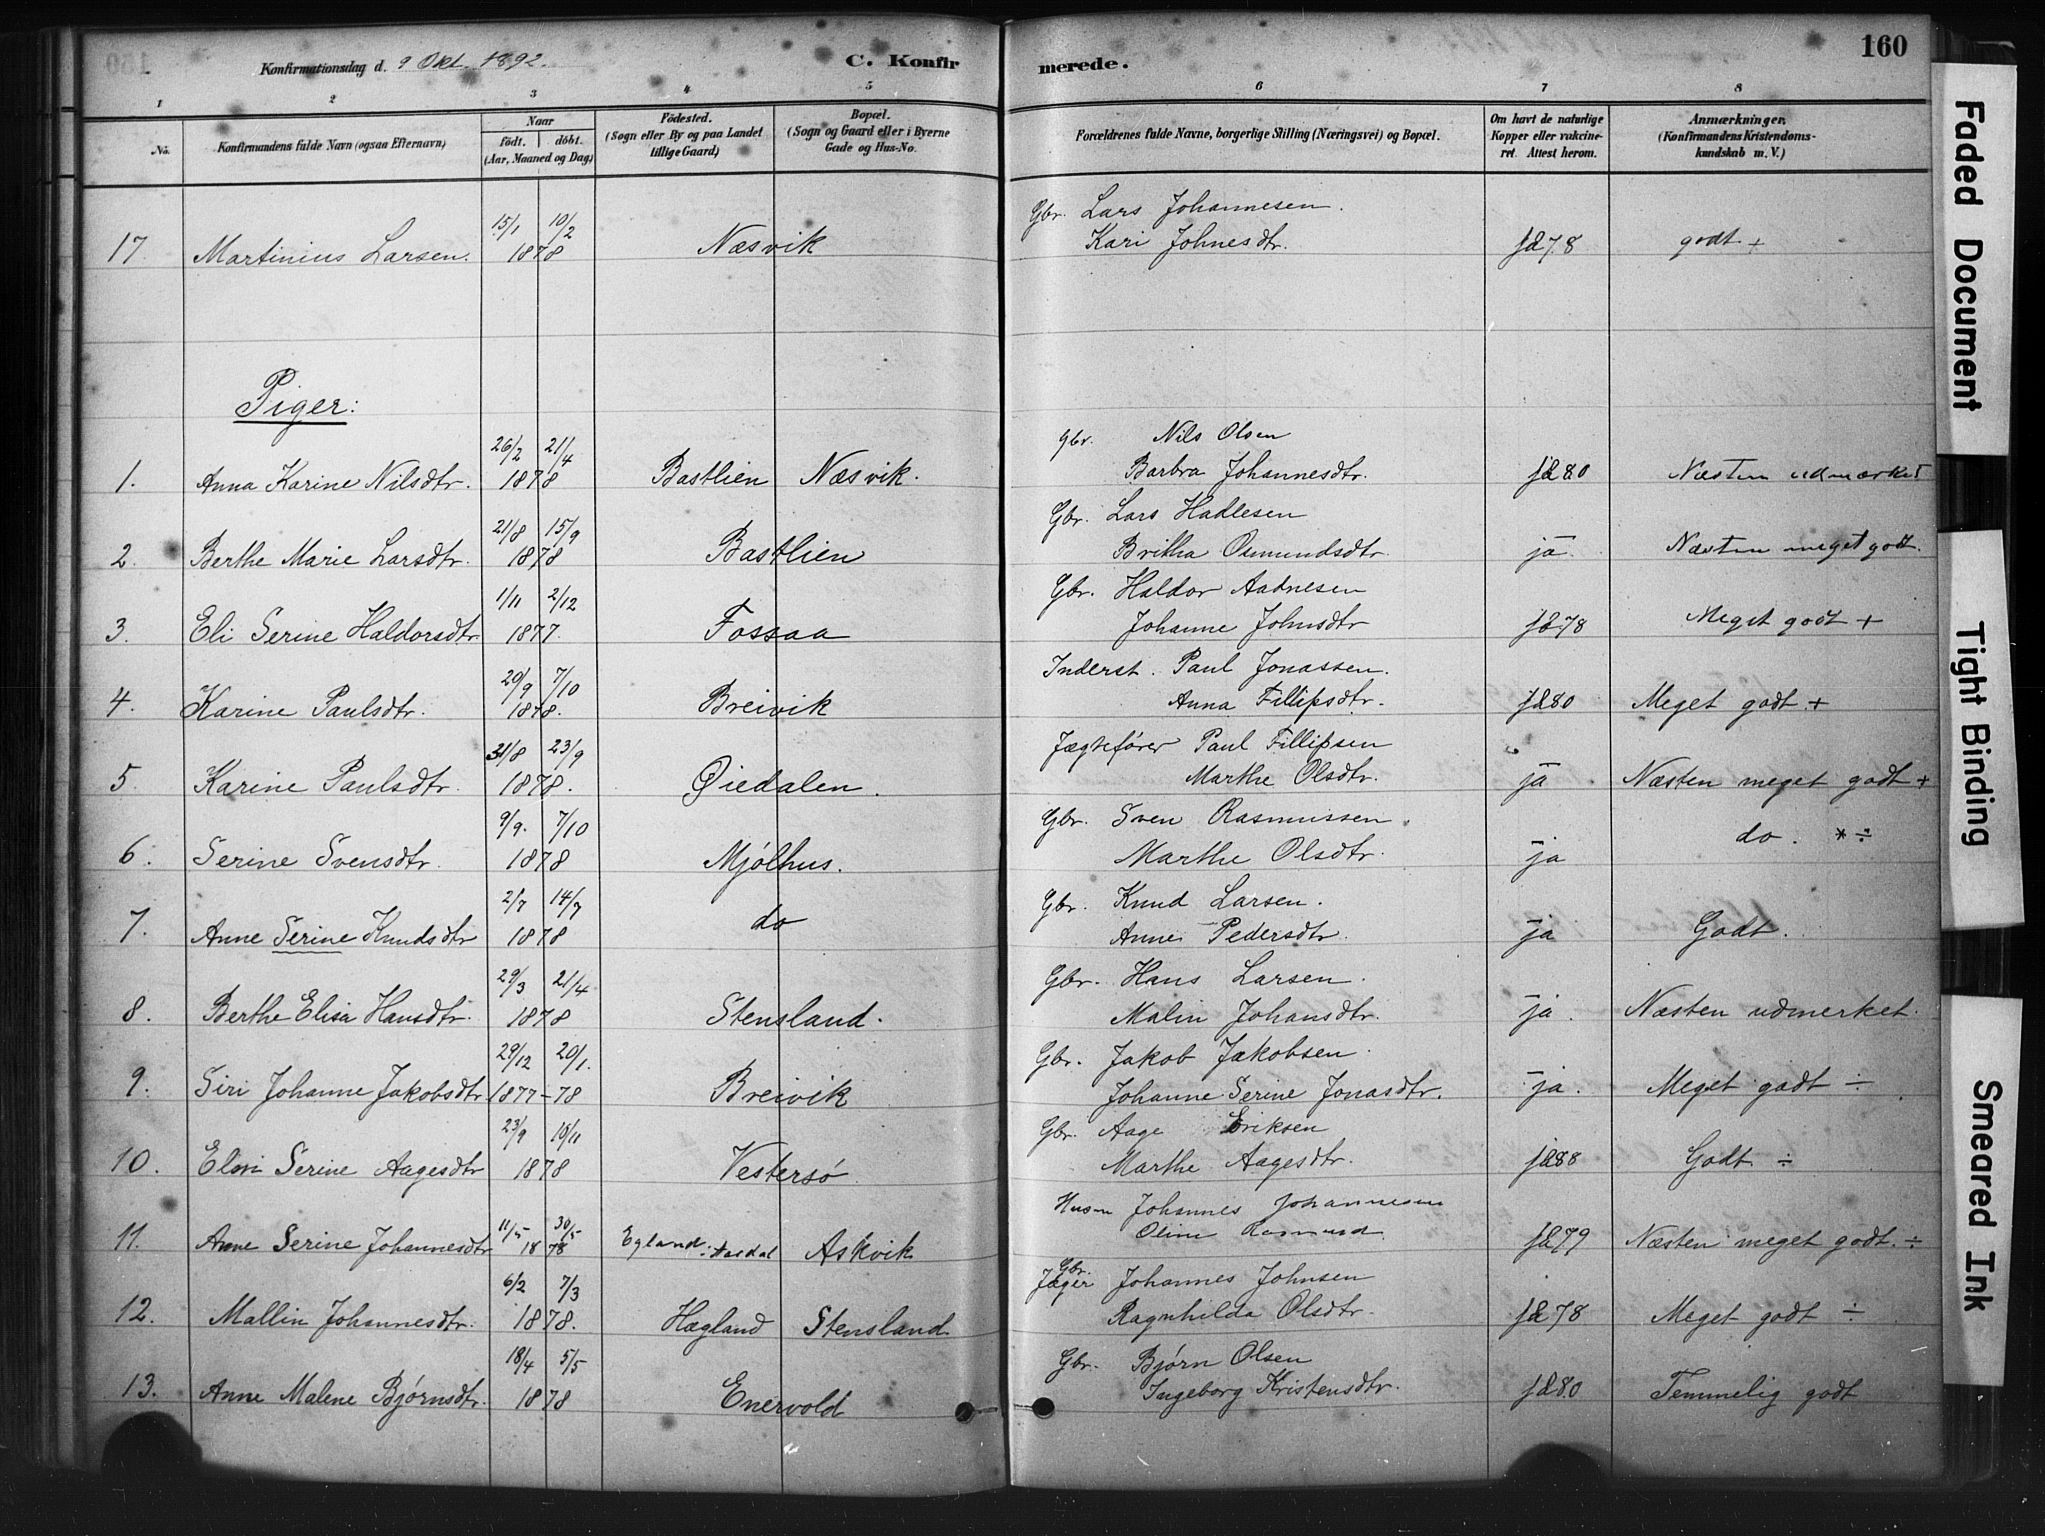 160
Konfirmationsdag d. 9 Okt. 1892. C. Konfirmerede.
1 2 3 4 5 6 7 8
No. Konfirmandens fulde Navn (ogsaa Efternavn) Naar født. døbt. (Aar, Maaned og Dag) Födested. (Sogn eller By og paa Landet tillige Gaard) Bopæl. (Sogn og Gaard eller i Byerne Gade og Hus-No. Forældrenes fulde Navne, borgerlige Stilling (Næringsvei) og Bopæl. Om havt de naturlige Kopper eller vakcineret. Attest herom. Anmærkninger. (Konfirmandens Kristendomskundskab m. V.)
15/1 10/2 Gbr. Lars Johannesen.
17. Martinius Larsen. 1878 Næsvik Kari Johnesdtr. ja 78 godt +
Piger:
26/2 21/4 gbr. Nils Olsen
1. Anna Karine Nilsdtr. 1878 Bastlien Næsvik. Barbra Johannesdtr. ja 80 Næsten udmærket
21/8 15/9 Gbr. Lars Hadlesen
2. Berthe Marie Larsdtr. 1878 Bastlien Britha Osmundsdtr. ja Næsten meget godt.
1/11 2/12 Gbr. Haldor Aadnesen
3. Eli Serine Haldorsdtr 1877 Fossaa Johanne Johnsdtr ja 78 Meget godt +
20/9 7/10 Inderst. Paul Jonassen.
4. Karine Paulsdtr. 1878. Breivik Anna Fillipsdtr. ja 80 Meget godt +
31/8 23/9 Jægtefører Paul Fillipsen
5 Karine Paulsdtr. 1878. Øiedalen. Marthe Olsdtr. ja Næsten meget godt +
9/9. 7/10 Gbr. Sven Rasmussen.
6. Serine Svensdtr. 1878 Mjølhus. Marthe Olsdtr. ja do. * ÷
2/7 14/7 Gbr. Knud Larsen.
7. Anne Serine Knudsdtr 1878 do Anne Pedersdtr. ja Godt.
29/3 21/4 Gbr. Hans Larsen.
8. Berthe Elisa Hansdtr. 1878 Stensland. Malin Johansdtr. ja. Næsten udmerket.
29/12 20/1. Gbr. Jakob Jakobsen.
9. Siri Johanne Jakobsdtr 1877-78 Breivik Johanne Serine Jonasdtr. ja. Meget godt ÷
23/9 10/11 Gbr. Aage Eriksen
10. Elovi Serine Aagesdtr 1878 Vestersø Marthe Aagesdtr. ja 88 Godt ÷
11/5 30/5 Husm Johannes Johannesen
11. Anne Serine Johannesdtr 1878 Egland i Aasdal Askvik Oline Rasmusd ja 79 Næsten meget godt. ÷
6/2 7/3 Gbr. Jæger Johannes Johnsen
12. Mallin Johannesdtr. 1878. Hægland Stensland. Ragnhilda Olsdtr. ja 78 Meget godt ÷
18/4 5/5 Gbr. Bjørn Olsen
13. Anne Malene Bjørnsdtr. 1878 Enervold Ingeborg Kristensdtr. ja 80 Temmelig godt
Faded Document
Tight Binding
Smeared Ink